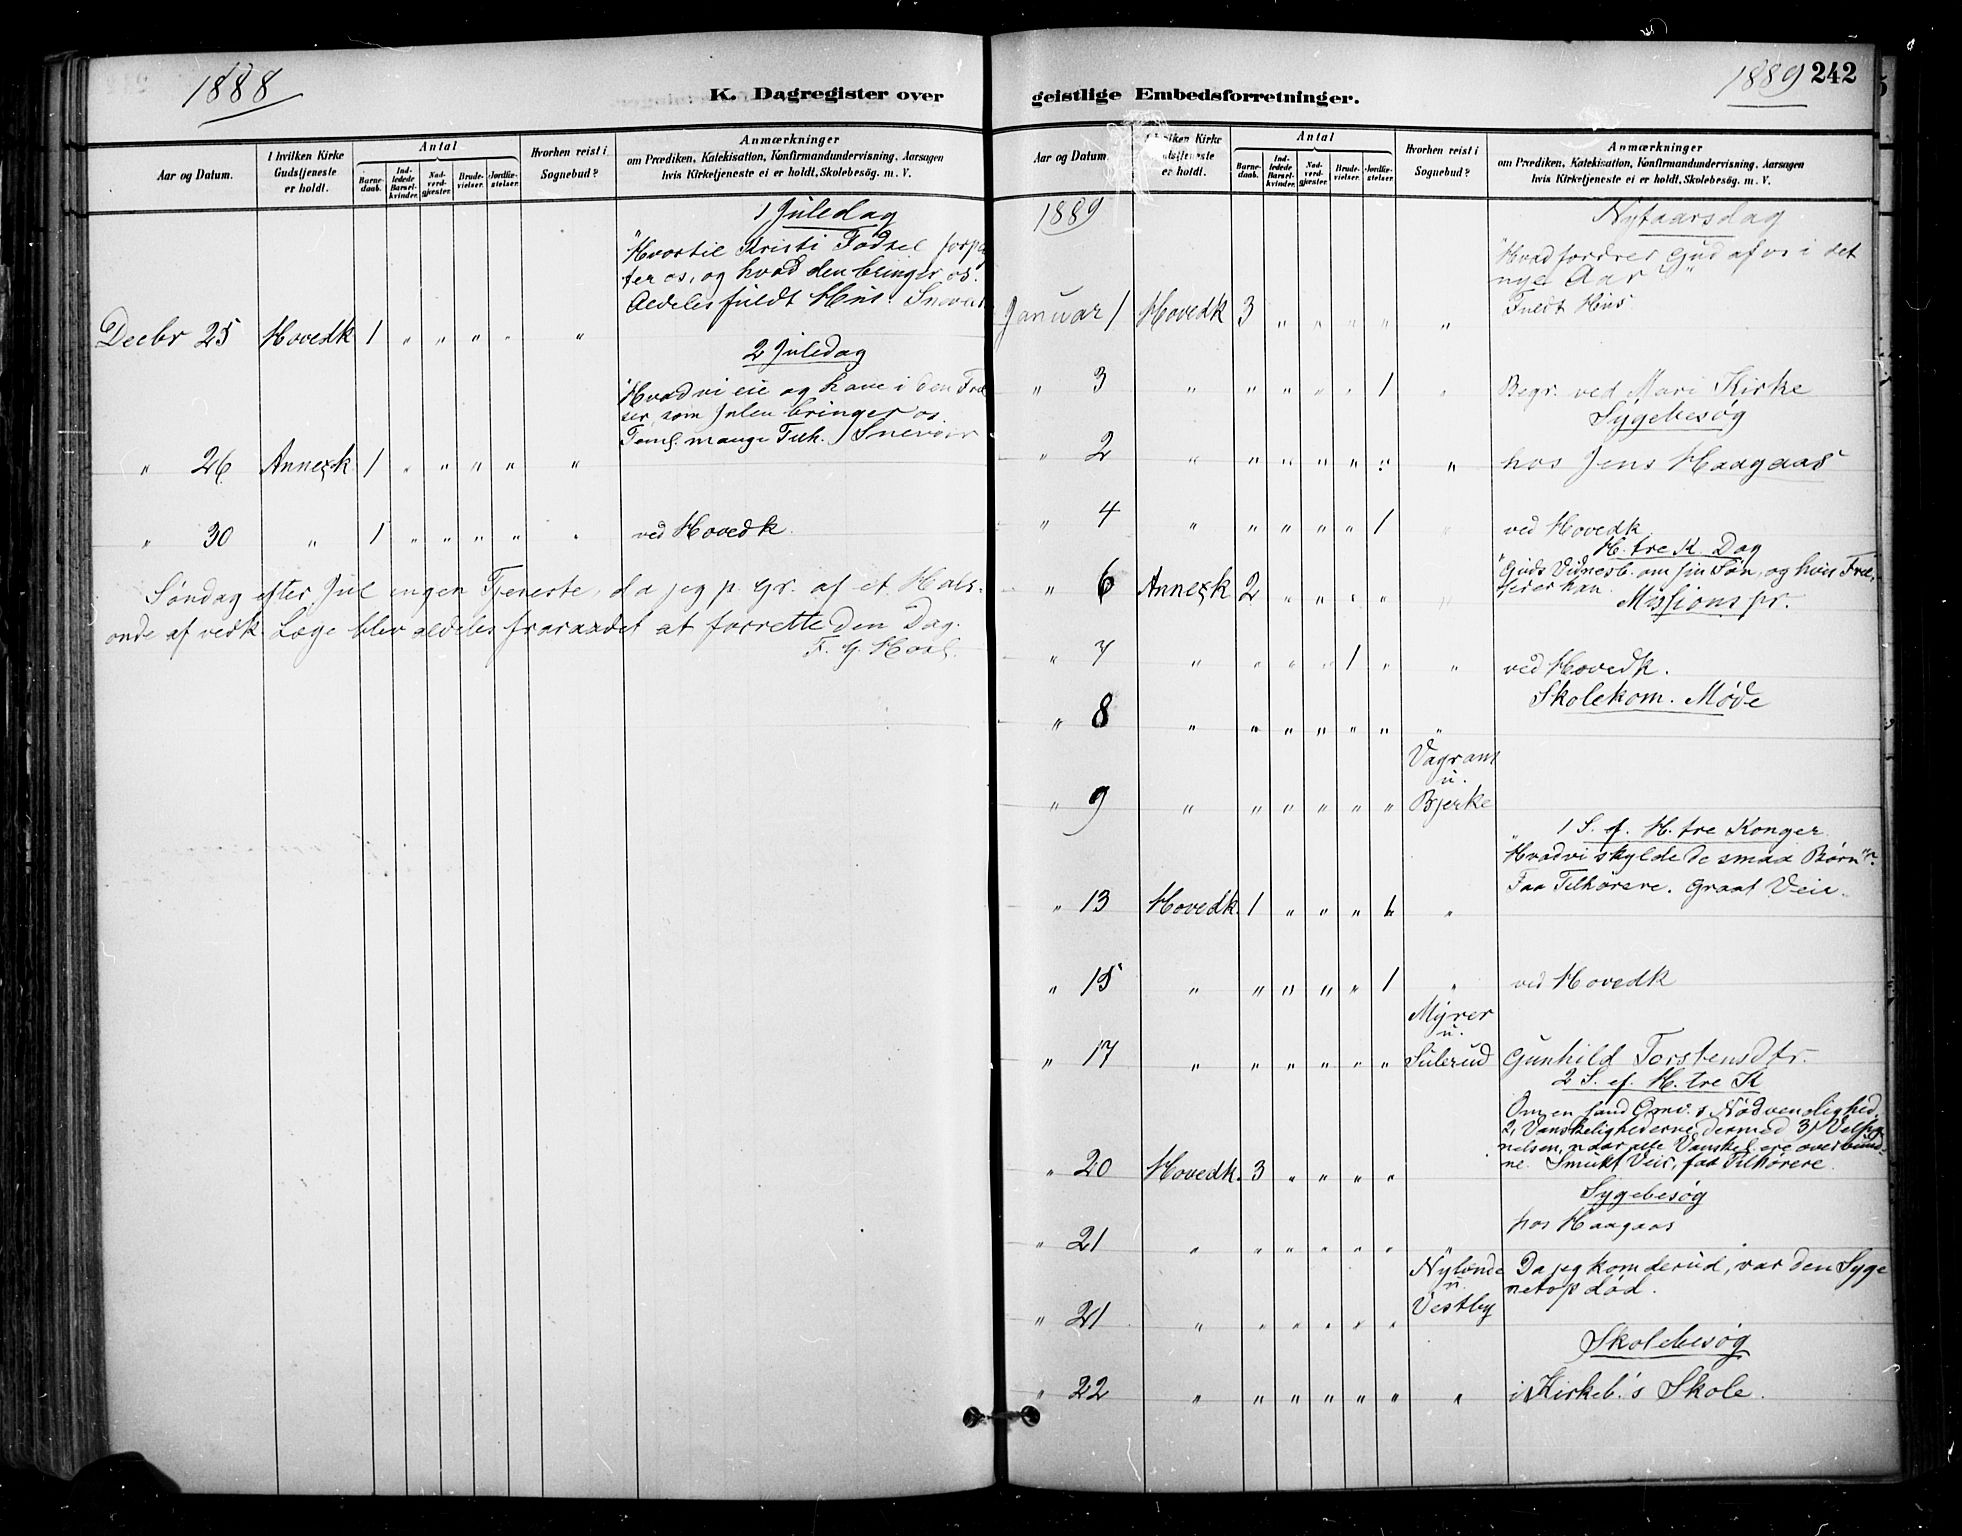 1888
K. Dagregister over
Aar og Datum.
I hvilken Kirke Gudstjeneste er holdt.
Antal
Barnedaab.
Indledede Barselkvinder.
Nadverdgjester.
Brudevielser.
Jordfæstelser.
Hvorhen reist i Sognebud?
Anmærkninger
om Prædiken, Katekisation, Konfirmandundervisning, Aarsagen
hvis Kirketjeneste ei er holdt, Skolebesøg. m. V.
1 Juledag
"Hvortil Kristi Fødsel
ter os, og hvad den bringer os."
Aldeles fuldt Hus.
Decbr 25 Hovedk 1 " " " " "
2 Juledag
"Hvad vi eie og have i den Frel
ser, som Julen bringer os
Teml. mange Tilh.
" 26 Annexk 1 " " " " "
" 30 " 1 " " " " " ved Hovedk.
Søndag efter Jul ingen Tjeneste, da jeg p. Gr. af et Hals-
onde af vedk. Læge blev aldeles fraraadet at forrette den Dag.
F. G.
1889 242
geistlige Embedsforretninger.
Aar og Datum.
I hvilken Kirke Gudstjeneste er holdt.
Antal
Barnedaab.
Indledede Barselkvinder.
Nadverdgjester.
Brudevielser.
Jordfæstelser.
Hvorhen reist i Sognebud?
Anmærkninger
om Prædiken, Katekisation, Konfirmandundervisning, Aarsagen
hvis Kirketjeneste ei er holdt, Skolebesøg. m. V.
1889
Nytaarsdag
"Hvad fordrer Gud af os i det
nye Aar"
Fuldt Hus
Januar 1 Hovedk 3 " " " " "
" 3 " " " " " 1 " Begr. ved Mari Kirke
Sygebesøg
" 2 " " " " " " " hos Jens Haagaas
" 4 " " " " " 1 " ved Hovedk
H. tre K. Dag
"Guds Vidnesb. om sin Søn, og hvis Frel-
ser er han.
Missionspr.
" 6 Annexk 2 " " " " "
" 7 " " " " 1 " " ved Hovedk.
Skolekom. Møde
" 8 " " " " " " "
Vagram
u.
" 9 " " " " " " Bjerke
1 S. ef. H. tre Konger
"Hvad vi skylde de smaa Børn".
Faa Tilhørere. Graat Veir.
" 13 Hovedk. 1 " " " "
" 15 " " " " " 1 " ved Hovedk
Myrer
u.
" 17 " " " " " " Sulerud Gunhild Torstensdtr.
2 S. ef. H. tre K
Om en sand Omv.s Nødvendighed,
2, Vanskelighederne dermed 3)
nelsen, naar alle Vanskel. ere overvund-
ne. Smukt Veir, faa Tilhørere.
" 20 Hovedk. 3 " " " "
Sygebesøg
hos Haagaas
" 21 " " " " " " "
Nylænde
u.
Vestby
Da jeg kom derud, var den Syge
netop død.
" 21 " " " " " "
Skolebesøg
" 22 " " " " " " " i Kirkeb.'s Skole.